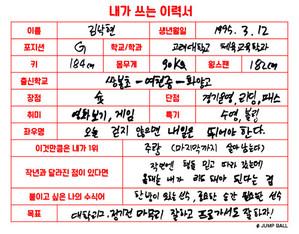 내가 쓰는 이력서
이름 김낙현 생년월일 1995. 3. 12
포지션 G 학교/학과 고려대학교 체육교육학과
키 184cm 몸무게 90kg 윙스팬 182cm
출신학교 쌍봉초 - 여천중 - 화양고
장점 슛 단점 경기운영, 리딩, 패스
취미 영화보기, 게임 특기 수영, 볼링
좌우명 오늘 걷지 않으면 내일은 뛰어야 한다.
이것만큼은 내가 1위 주량 (마지막까지 살아남는다)
작년과 달라진 점이 있다면 작년엔 형들 믿고 따라 갔는데
올해는 내가 리드 해야 된다는 점
붙이고 싶은 나의 수식어 한방이 있는 선수, 중요한 순간 필요한 선수
목표 대학리그, 정기전 마무리 잘하고 프로가서도 잘하자!
@ JUMP BALL